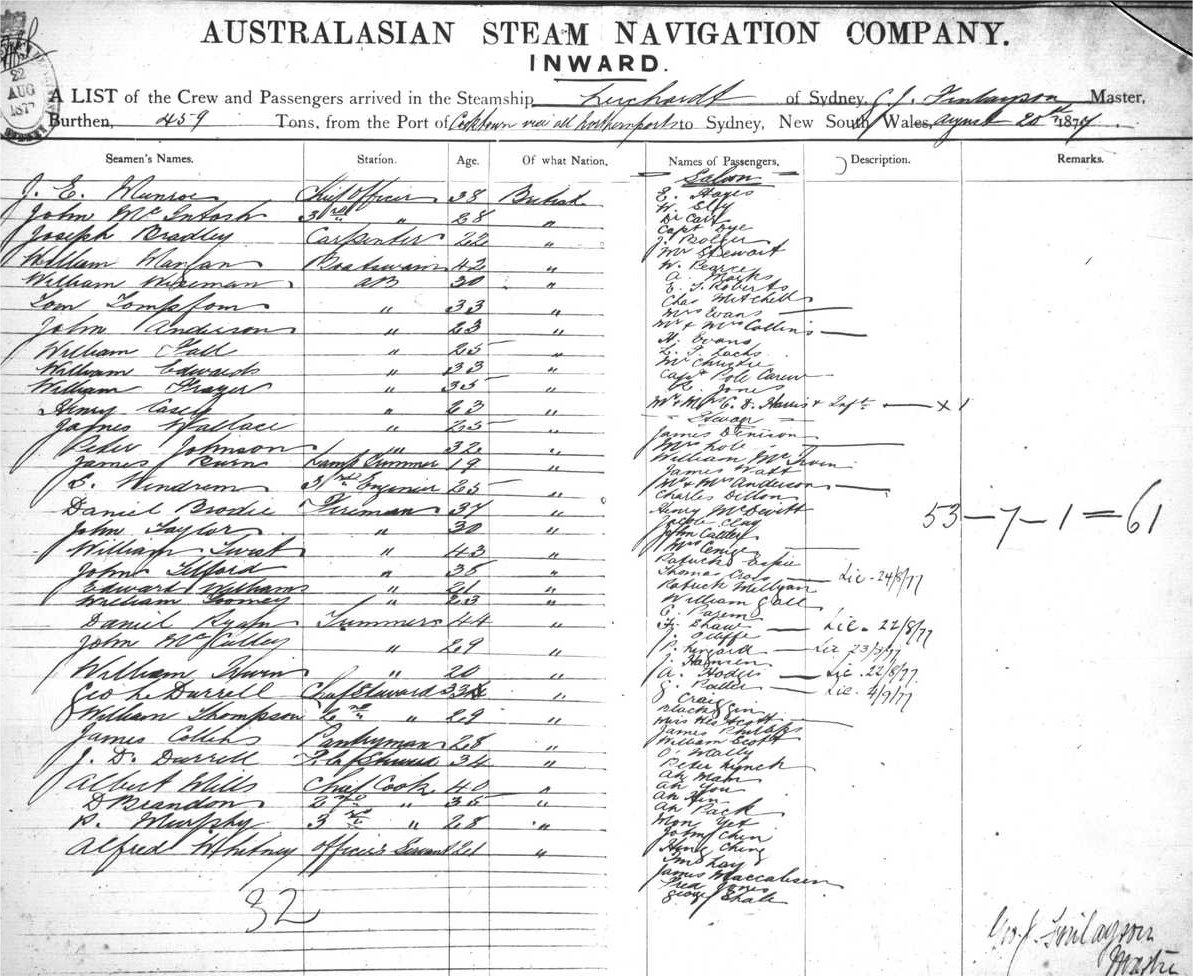 22
AUG
1877
AUSTRALASIAN STEAM NAVIGATION COMPANY.
INWARD.
A LIST of the Crew and Passengers arrived in the Steamship Leichardt of Sydney, Finlayson Master,
Burthen, 459 Tons, from the Port of Cooktown via all northern ports to Sydney, New South Wales, August 20th 1877
Seamen's Names. Station. Age. Of what Nation, Names of Passengers, Description. Remarks.
Saloon
J. E. Munroe Chief Officer 38 British
John McIntosh 3rd " 28 "
Joseph Bradley Carpenter 22 "
William Boatswain 42 "
William Wiseman AB 30 "
Tom 33 "
John Anderson " 23 "
William Hall " 25 "
William Edwards " 33 "
William Frazer " 35 "
Henry Casey " 23 "
James Wallace " 25 "
Peter Johnson " 32 "
James Burn Lamp Trimmer 19 "
S. Windrem 3rd Engineer 25 "
Daniel Brodie Fireman 37 "
John Taylor " 30 "
William Twist " 43 "
John Telford " 35 "
Edward Williams " 21 "
William Toomey " 23 "
Daniel Ryan Trimmers 44 "
John McCulley " 29 "
William Irwin " 20 "
Geo L. Durrell Chief Steward "
William Thompson 2nd " 29 "
James Collins Pantryman 28 "
J. D. Durrell Steward 34 "
Albert Wills Chief Cook 40 "
D Brandon 2nd " 35 "
P. Murphy 3rd " 28 "
Alfred Whitney Officers Servant 21 "
32
E. Hayes
W. Elly
Dr Carr
Capt Dye
J.
Mr Stewart
W. Pearce
A. Marks
E. J. Roberts
Chas Mitchell
Mrs Evans
Mr & Mrs Collins
H. Evans
L. J. Sachs
Mr Christie
Capt Pole Carew
R. Jones
Mr & Mrs E. D. Harris & Inft. x 1
Steerage
James Denison
Mrs
William McIrvin
James Watt
Mr & Mrs Anderson
Charles Dillon
Henry McDevitt
Jacob Clay
John
Mrs
Patrick
Thomas Lic. 24/8/77
Patrick Milligan
William Gall
C.
Shaw Lic. 22/8/77
J.
P. Lic 23/8/77
J. Hannen
A. Hodges Lic. 22/8/77
G. Potter Lic. 4/9/77
J. Craig
Black Gin
Miss Scott
James Philips
William Scott
O' Mally
Peter Lynch
Ah Mam
Ah You
Ah Hin
Ah Pack
Mon Yet
John Chin
Hing Ching
Lay
James
Fred Jones
George Shale
53 – 7 – 1 = 61
Geo. J. Finlayson
Master